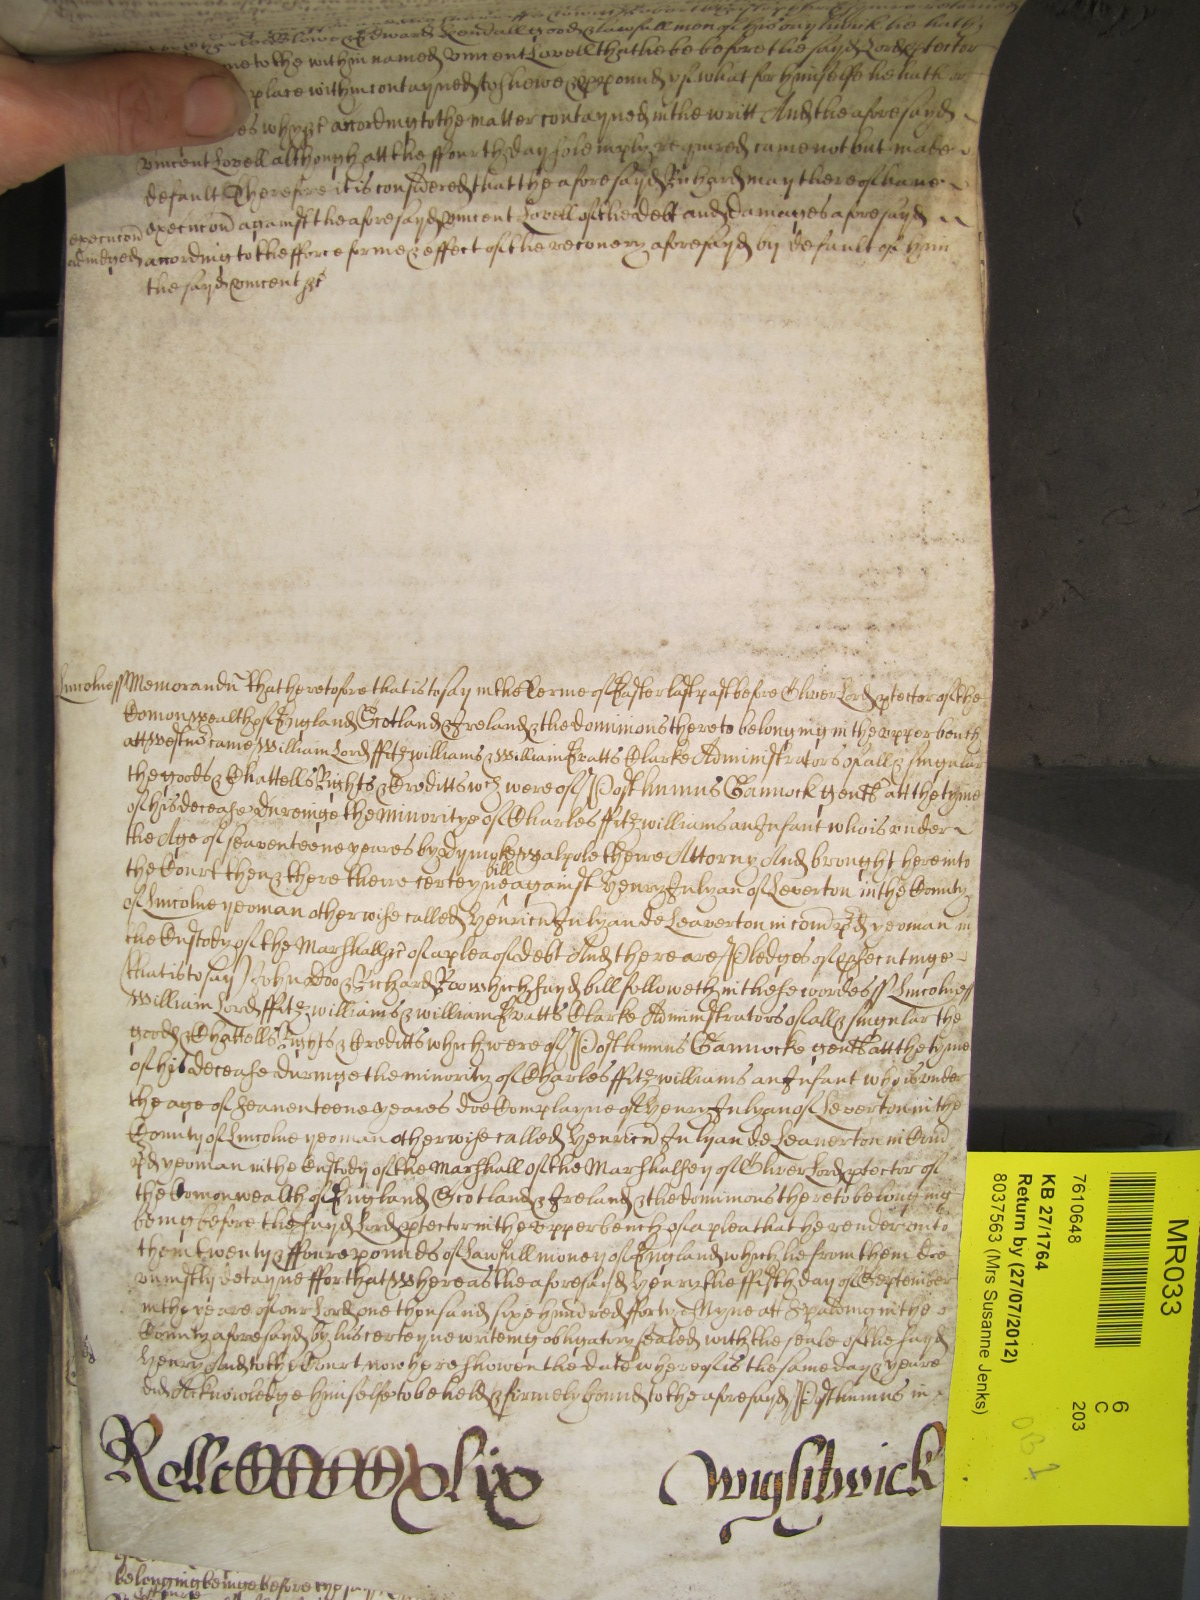 Edward Kendall good & lawfull men of his baylywick he hath
me to the within named Vincent Lovell that he be before the sayd Lord ptector
place within contayned to showe & ppound yf what for himselfe he hath or
whye &c according to the matter contayned in the writt And the aforesayd
Vincent Lovell although att the ffourth day solemply required came not but made
default Therefore it is considered that the aforesayd Richard may thereof have
execucon execucon against the aforesayd Vincent Lovell of the debt and damages aforesayd
adiudged according to the fforce forme & effect of the recovery aforesayd by default of him
the sayd Vincent &c
Lincolne ss Memorandu That heretofore that is to say in the Terme of Easter last past before Oliver Lord ptector of the
Comonwealth of England Scotland & Ireland & the dominions thereto belonging in the upper bench
att Westmr came William Lord ffitzwilliams & William Pratts Clarke Administrators of all & singular
the goods & Chattells Rights & Creditts wch were of Posthumus Gannock gentl att the tyme
of his decease Dureinge the Minoritye of Charles ffitzwilliams an Infant who is under
the Age of seaventeene yeares by Dymoke Walpole theire Attorny And brought here into
the Court then & there theire certeyne bill against Henry Julyan of Leverton in the County
of Lincolne yeoman otherwise called Henricu Julyan de Leaverton in com pd yeoman in
the Custody of the Marshall &c of a plea of debt And there are Pledges of psecutinge
(that is to say) John Doo & Richard Roo which sayd bill followeth in these wordes ss Lincolne ss
William Lord ffitzwilliams & William Pratts Clarke Administrators of all & singular the
goods & Chattells Rights & Creditts which were of Posthumus Gannocke gentl att the tyme
of his decease duringe the minority of Charles ffitzwilliams an Infant who is under
the age of seaventeene yeares doe Complayne of Henry Julyan of Leverton in the
County of Lincolne yeoman otherwise called Henricu Julyan de Leaverton in Com
pd yeoman in the Custody of the Marshall of the Marshalsey of Oliver Lord ptector of
the Comonwealth of England Scotland & Ireland & the dominions thereto belonging
being before the sayd Lord ptector in the upper bench of a plea that he render unto
them twenty & ffoure pounds of Lawfull money of England which he from them doe
uniustly detayne ffor that Whereas the aforesayd Henry the ffifth day of September
in the yeare of our Lord one thousand sixe hundred forty & Nyne att Spalding in the
County aforesayd by his certeyne writeing obligatory sealed with the seale of the sayd
Henry And to the Court now here showen the date whereof is the same day & yeare
did Acknowledge himselfe to be held & firmely bound to the aforesayd Posthumus in
Rolle CCCCC xlix Wightwick
belonging beinge before the say
MR033
6
C
203
7610648
KB 27/1764
Return by (27/07/2012)
8037563 (Mrs Susanne Jenks)